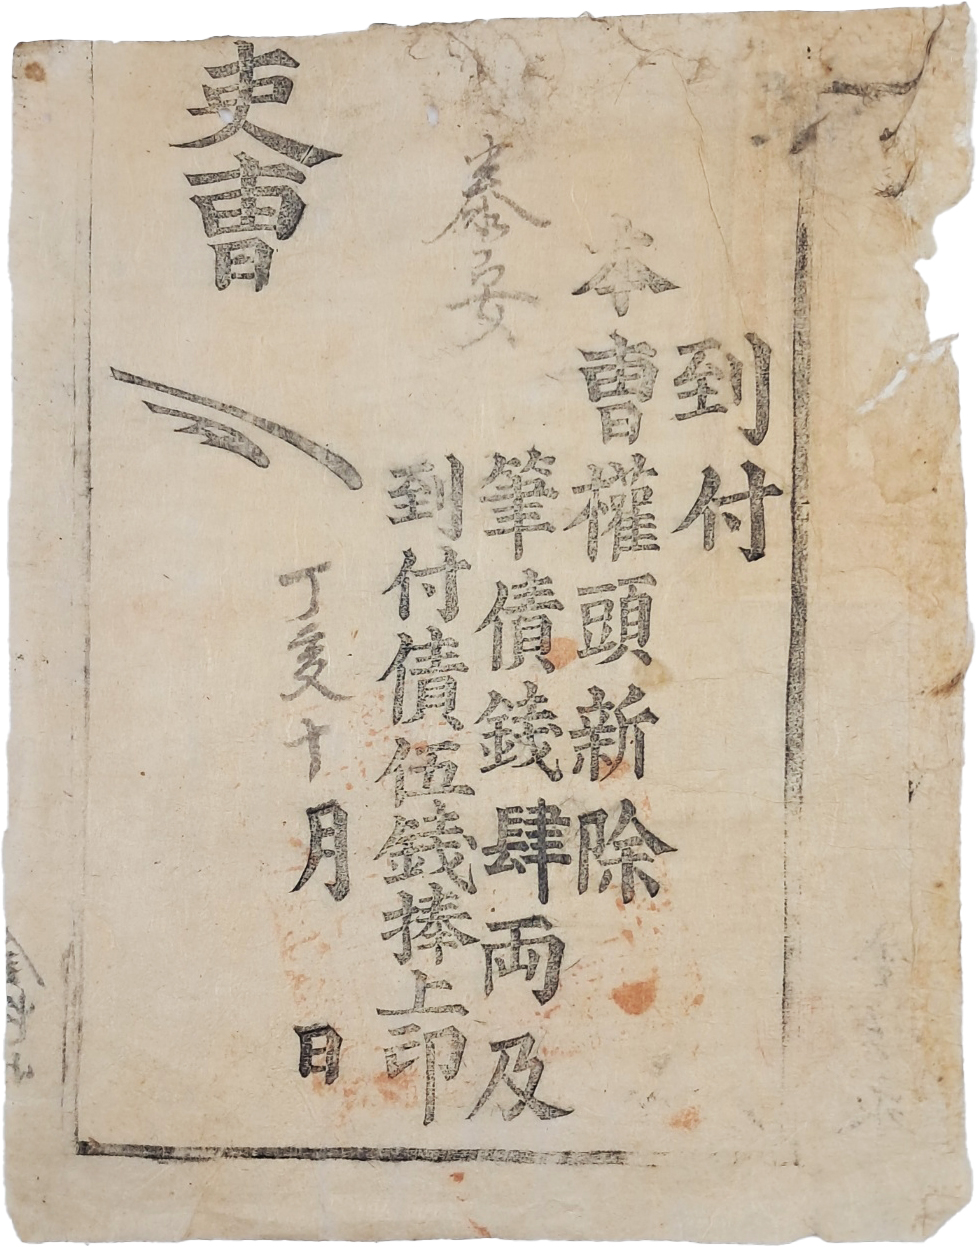 到付
本曹權頭新除
泰安
筆債錢肆両及
到付債伍錢捧上印
丁亥十月 日
吏曹